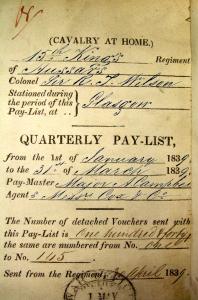 (CAVALRY AT HOME.)
15th King's Regiment
of Hussars
Colonel Sir R. T. Wilson
Stationed during
the period of this
Pay-List, at .. Glasgow
QUARTERLY PAY-LIST,
from the 1st of January 1839.
to the 31st of March 1839.
Pay-Master Major
Agent s Messrs Cox & Co.
The Number of detached Vouchers sent with
this Pay-List is One hundred & forty
the same are numbered from No.
to No. 145
Sent from the Regiment, April 1839.